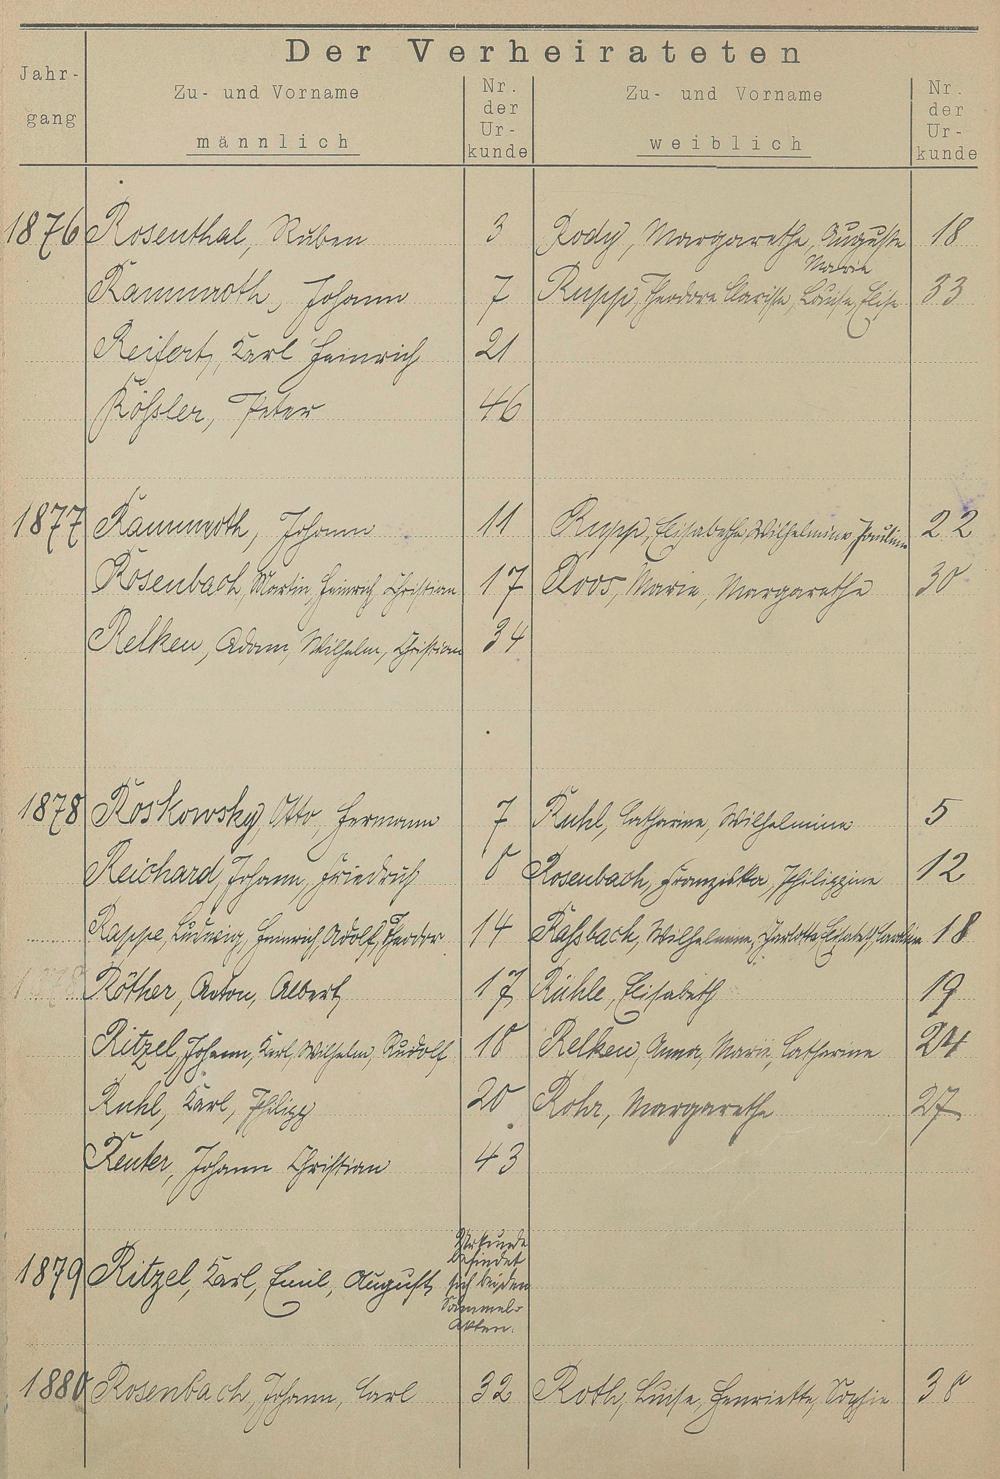 Der Verheirateten
Jahr-
gang
Zu- und Vorname
männlich
Nr.
der
Ur-
kunde
Zu- und Vorname
weiblich
Nr.
der
Ur-
kunde
1876 Rosenthal, Ruben 3 Rody, Margarethe, Auguste 18
Marie
Rammroth, Johann 7 Rupp, Theodore Clarissa, Louise, Elise 33
Reifert, Karl Heinrich 21
Rößler, Peter 46
1877 Rammroth, Johann 11 Rupp, Elisabethe, Wilhelmine, Pauline 22
Rosenbach, Martin, Heinrich, Christian 17 Roos, Marie, Margarethe 30
Relken, Adam, Wilhelm, Christian 34
1878 Roskowsky, Otto, Hermann 7 Ruhl, Catharine, Wilhelmine 5
Reichard, Johann, Friedrich 8 Rosenbach, Franziska, Philippine 12
Rappe, Ludwig, Heinrich, Adolf, Theodor 14 Raßbach, Wilhelmine, Charlotte, Elisabeth, Caroline 18
1878 Röther, Anton, Albert 17 Rühle, Elisabeth 19
Ritzel, Johann, Karl, Wilhelm, Rudolf 18 Relken, Anna, Marie, Catharine 24
Ruhl, Karl, Philipp 20 Rohr, Margarethe 27
Reuter, Johann Christian 43
1879 Ritzel, Karl, Emil, August
Urkunde
befindet
sich bei den
Sammel-
Akten.
1880 Rosenbach, Johann, Carl 32 Roth, Luise, Henriette, Sophie 38